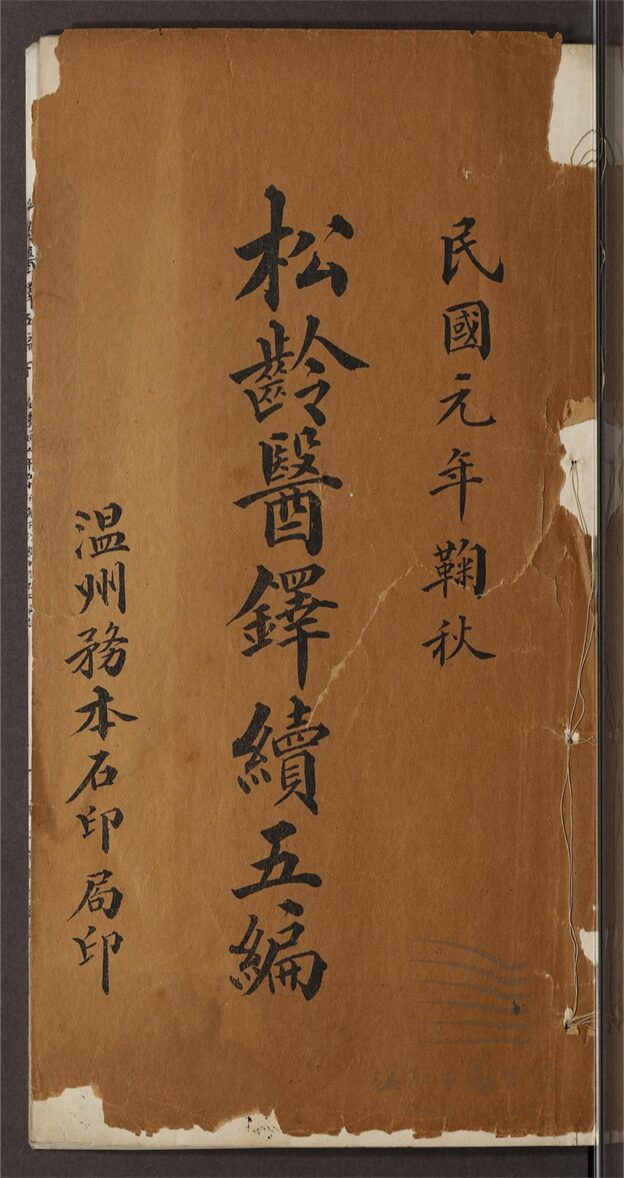 民國元年鞠秋
松齡醫鐸續五編
温州務本石印局印